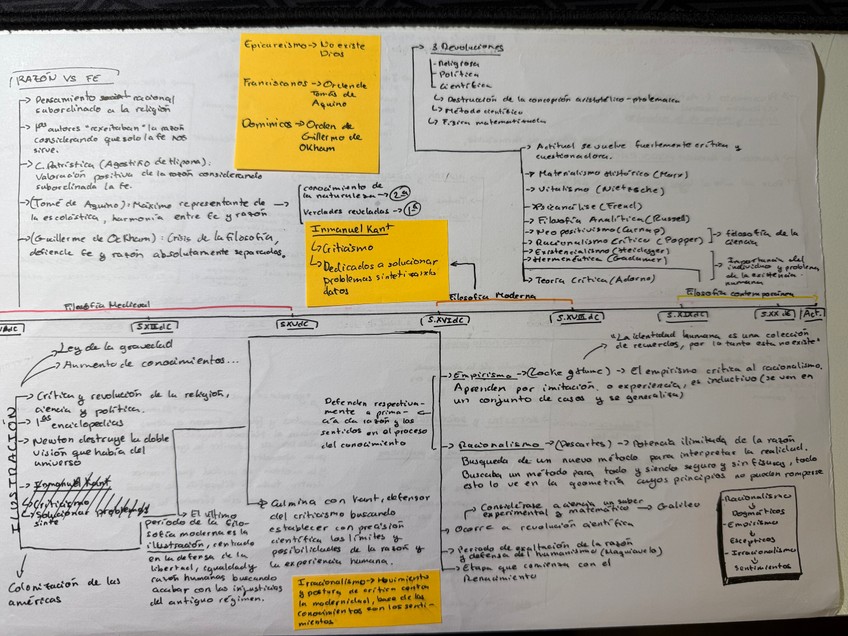 RAZÓN VS FE
Pensamiento racional
subordinado a la religión
1ºs autores "rexeitaban" la razón
considerando que solo la fe nos
sirve.
C. Patrística (Agostiño de Hipona):
Valoración positiva de la razón considerando
subordinada la fe.
(Tomé de Aquino): Máximo representante de
la escolástica, harmonía entre fe y razón
conocimiento de
la naturaleza → 2ª
Verdades reveladas → 1ª
(Guillerme de Ockham): Crisis de la filosofía,
defiende fe y razón absolutamente separadas.
Epicureismo → No existe
Dios
Franciscanos → Orden de
Tomás de
Aquino
Dominicos → Orden de
Guillermo de
Okham
Inmanuel Kant
Criticismo
Dedicados a solucionar
problemas
datos
3 Revoluciones
Religiosa
Política
Científica
Destrucción de la concepción aristotélico-ptolemaica
Método científico
Física matemática
Actitud se vuelve fuertemente crítica y
cuestionadora.
Materialismo Histórico (Marx)
Vitalismo (Nietzsche)
Psicanálise (Freud)
Filosofía Analítica (Russell)
Neopositivismo (Carnap)
Racionalismo Crítico (Popper)
filosofía de la
ciencia
Existencialismo (Heidegger)
Hermenéutica (Gadamer)
Importancia del
individuo y problema
de la existencia
humana
Teoría Crítica (Adorno)
Filosofía Medieval
Filosofía Moderna
Filosofía contemporánea
S.XIIIdC
S.XVdC
S.XVIdC
S.XVIIIdC
S.XIXdC
S.XXdC
Act.
Ley de la gravedad
Aumento de conocimientos...
ILUSTRACIÓN
Crítica y revolución de la religión,
ciencia y política.
1ºs enciclopedias
Newton destruye la doble
visión que había del
universo
Inmanuel Kant
Criticismo
Solucionar problemas
sinte
Colonización de las
américas
El último
período de la filo-
sofía moderna es la
ilustración, centrado
en la defensa de la
libertad, igualdad y
razón humanas buscando
acabar con las injusticias
del antiguo régimen.
Culmina con Kant, defensor
del criticismo buscando
establecer con precisión
científica los límites y
posibilidades de la razón y
la experiencia humana.
Irracionalismo → Movimiento
y postura de crítica contra
la modernidad, base de los
conocimientos son los senti-
mientos
Defienden respectiva-
mente a prima-
cía da razón y los
sentidos en el proceso
del conocimiento
"La identidad humana es una colección
de recuerdos, por lo tanto esta no existe"
Empirismo → (Locke y Hume) → El empirismo critica al racionalismo.
Aprenden por imitación o experiencia, es inductivo (se ven en
un conjunto de casos y se generaliza)
Racionalismo → (Descartes) → Potencia ilimitada de la razón
Busqueda de un nuevo método para interpretar la realidad.
Buscaba un método para todo y siendo seguro y sin fisuras, todo
esto lo ve en la geometría cuyos principios no pueden romperse
Considérase a ciencia un saber
experimental y matemático → Galileo
Ocorre a revolución científica
Período de exaltación de la razón
y defensa del humanismo (Maquiavelo)
Etapa que comienza con el
Renacimiento
Racionalismo
Dogmáticos
- Empirismo
Escépticos
- Irracionalismo
Sentimientos